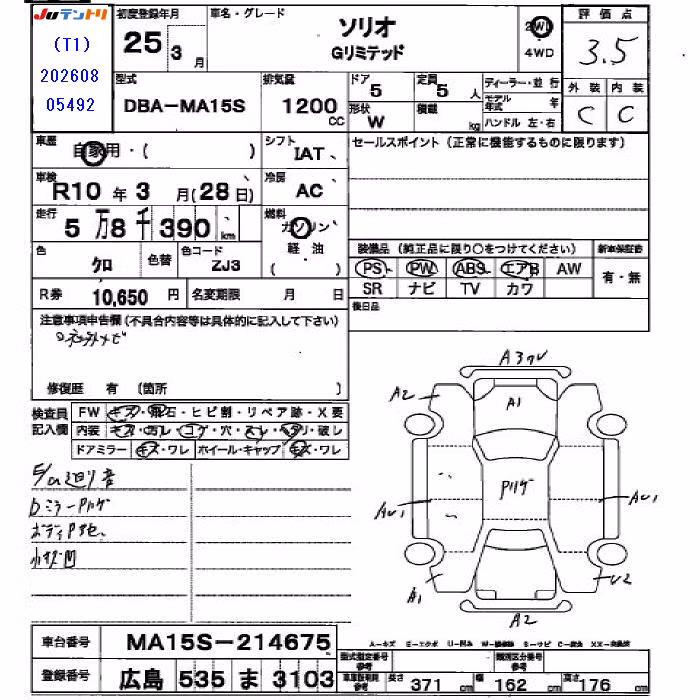 Juテントリ
(T1)
202608
05492
初度登録年月
25 3 月
車名・グレード
ソリオ
Gリミテッド
2WD
4WD
評価点
3.5
外装 内装
C C
型式
DBA-MA15S
排気量
1200 cc
ドア
5
定員
5 人
形状
W
積載
kg
ディーラー・並行
モデル年式 年
ハンドル 左・右
車歴
自家用・( )
シフト
IAT
セールスポイント(正常に機能するものに限ります)
車検
R10 年 3 月(28日)
冷房
AC
走行
5万8千390 km
燃料
ガソリン
軽油
( )
色
クロ
色替
色コード
ZJ3
装備品(純正品に限り○をつけてください)
新車保証書
PS PW ABS エアB AW
有・無
SR ナビ TV カワ
後日品
R券 10,650 円
名変期限 月 日
注意事項申告欄(不具合内容等は具体的に記入して下さい)
修復歴 有 (箇所 )
検査員
記入欄
FW キズ・飛石・ヒビ割・リペア跡・X要
内装 キズ・汚レ・コゲ・穴・スレ・ヘタリ・破レ
ドアミラー キズ・ワレ ホイール・キャップ キズ・ワレ
A2
A1
A1
A2
車台番号 MA15S-214675
登録番号 広島 535 ま 3103
A-キズ E-エクボ U-凹み
型式指定番号
参考
類別区分番号
参考
長さ 371 cm 幅 162 cm 高さ 176 cm